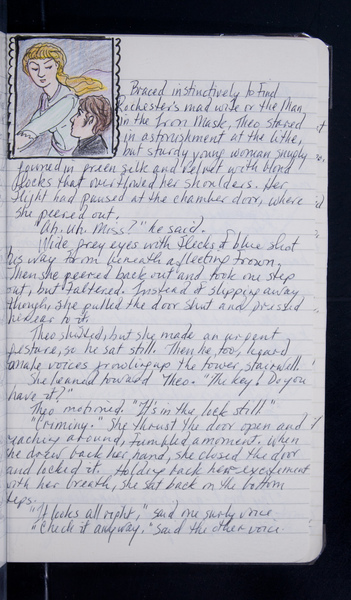 Braced instinctively to find
Rochester's mad wife or the Man
in the Iron Mask, Theo stared
in astonishment at the lithe,
but sturdy young woman snugly
gowned in green silk and velvet with blond
locks that overflowed her shoulders. Her
flight had paused at the chamber door, where
she peered out.
"Uh, uh, Miss?" he said.
Wide grey eyes with flecks of blue shot
his way from beneath a fleeting frown.
Then she peered back out and took one step
out, but faltered. Instead of slipping away
though, she pulled the door shut and pressed
her ear to it.
Theo shifted, but she made an urgent
gesture, so he sat still. Then he, too, heard
male voices growling up the tower stairwell.
She leaned toward Theo. "The key! Do you
have it?"
Theo motioned. "It's in the lock still"
"Criminy." She thrust the door open and
reaching around, fumbled a moment. When
she drew back her hand, she closed the door
and locked it. Holding back her excitement
with her breath, she sat back on the bottom
steps.
"Looks all right," said one surly voice.
"Check it anyway," said the other voice.